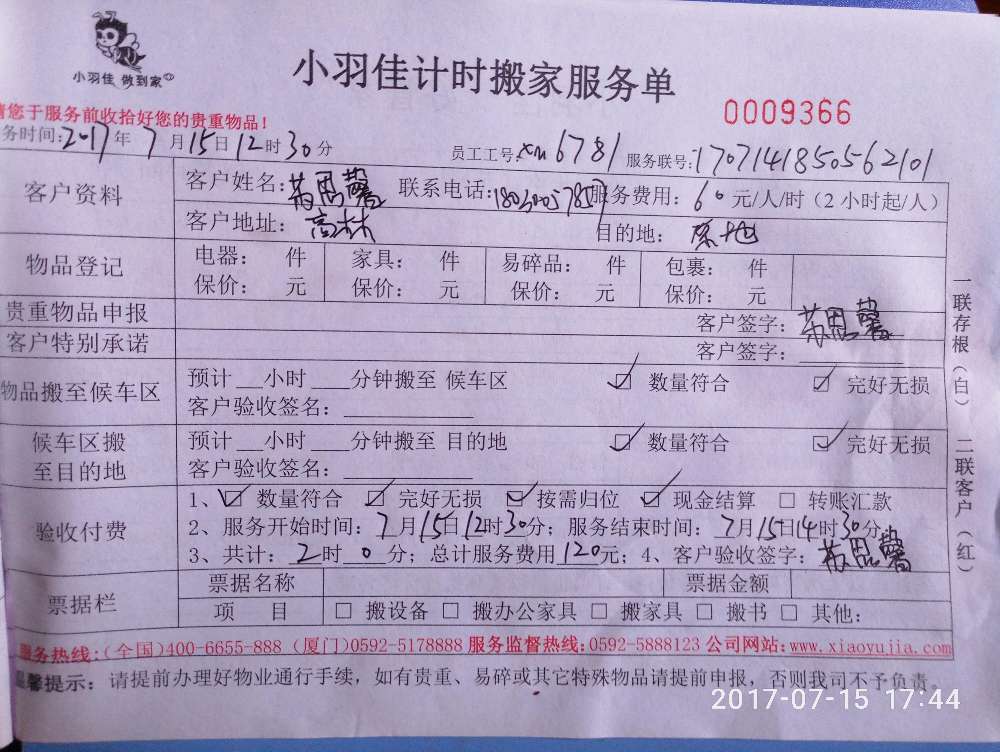 小羽佳 做到家
小羽佳计时搬家服务单
0009366
请您于服务前收拾好您的贵重物品!
务时间:2017年7月15日12时30分 员工工号:xm6781 服务联号:1707141850562101
客户资料 客户姓名:苏思馨 联系电话: 服务费用:60元/人/时(2小时起/人)
客户地址:高林 目的地:原地
物品登记 电器: 件 家具: 件 易碎品: 件 包裹: 件
保价: 元 保价: 元 保价: 元 保价: 元
贵重物品申报 客户签字:苏思馨
客户特别承诺 客户签字:
物品搬至候车区 预计__小时___分钟搬至 候车区 ☑ 数量符合 ☑ 完好无损
客户验收签名:
候车区搬至目的地 预计__小时___分钟搬至 目的地 ☑ 数量符合 ☑ 完好无损
客户验收签名:
验收付费 1、☑ 数量符合 ☑ 完好无损 ☑ 按需归位 ☑ 现金结算 □ 转账汇款
2、服务开始时间:7月15日12时30分;服务结束时间:7月15日14时30分
3、共计:2时0分;总计服务费用120元;4、客户验收签字:苏思馨
票据栏 票据名称 票据金额
项 目 □ 搬设备 □ 搬办公家具 □ 搬家具 □ 搬书 □ 其他:
一联存根(白) 二联客户(红)
服务热线:(全国)400-6655-888 (厦门)0592-5178888 服务监督热线:0592-5888123 公司网站:www.xiaoyujia.com
温馨提示:请提前办理好物业通行手续,如有贵重、易碎或其它特殊物品请提前申报,否则我司不予负责。
2017-07-15 17:44